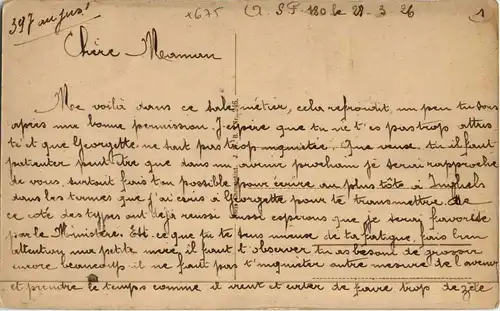 397 au jus!
x675 S.P. 180 le 28-3 26 1
Chère Maman
Me voilà dans ce sale métier, cela refroidit un peu tu sais
après une bonne permission. J'espère que tu ne t'es pas trop attris
té et que Georgette ne sait pas trop inquiétée. Que veux tu il faut
patienter peut être que dans un avenir prochain je serai rapproché
de vous, surtout fais ton possible pour écrire au plus tôt à
dans les termes que j'ai cités à Georgette pour te transmettre. De
ce coté des types ont déjà réussi aussi espérons que je serai favorisé
par le Ministère. Est-ce que tu te sens mieux de ta fatigue, fais bien
attention ma petite mère il faut t'observer tu as besoin de grossir
encore beaucoup il ne faut pas t'inquiéter outre mesure de l'avenir
et prendre le temps comme il vient et éviter de faire trop de zèle